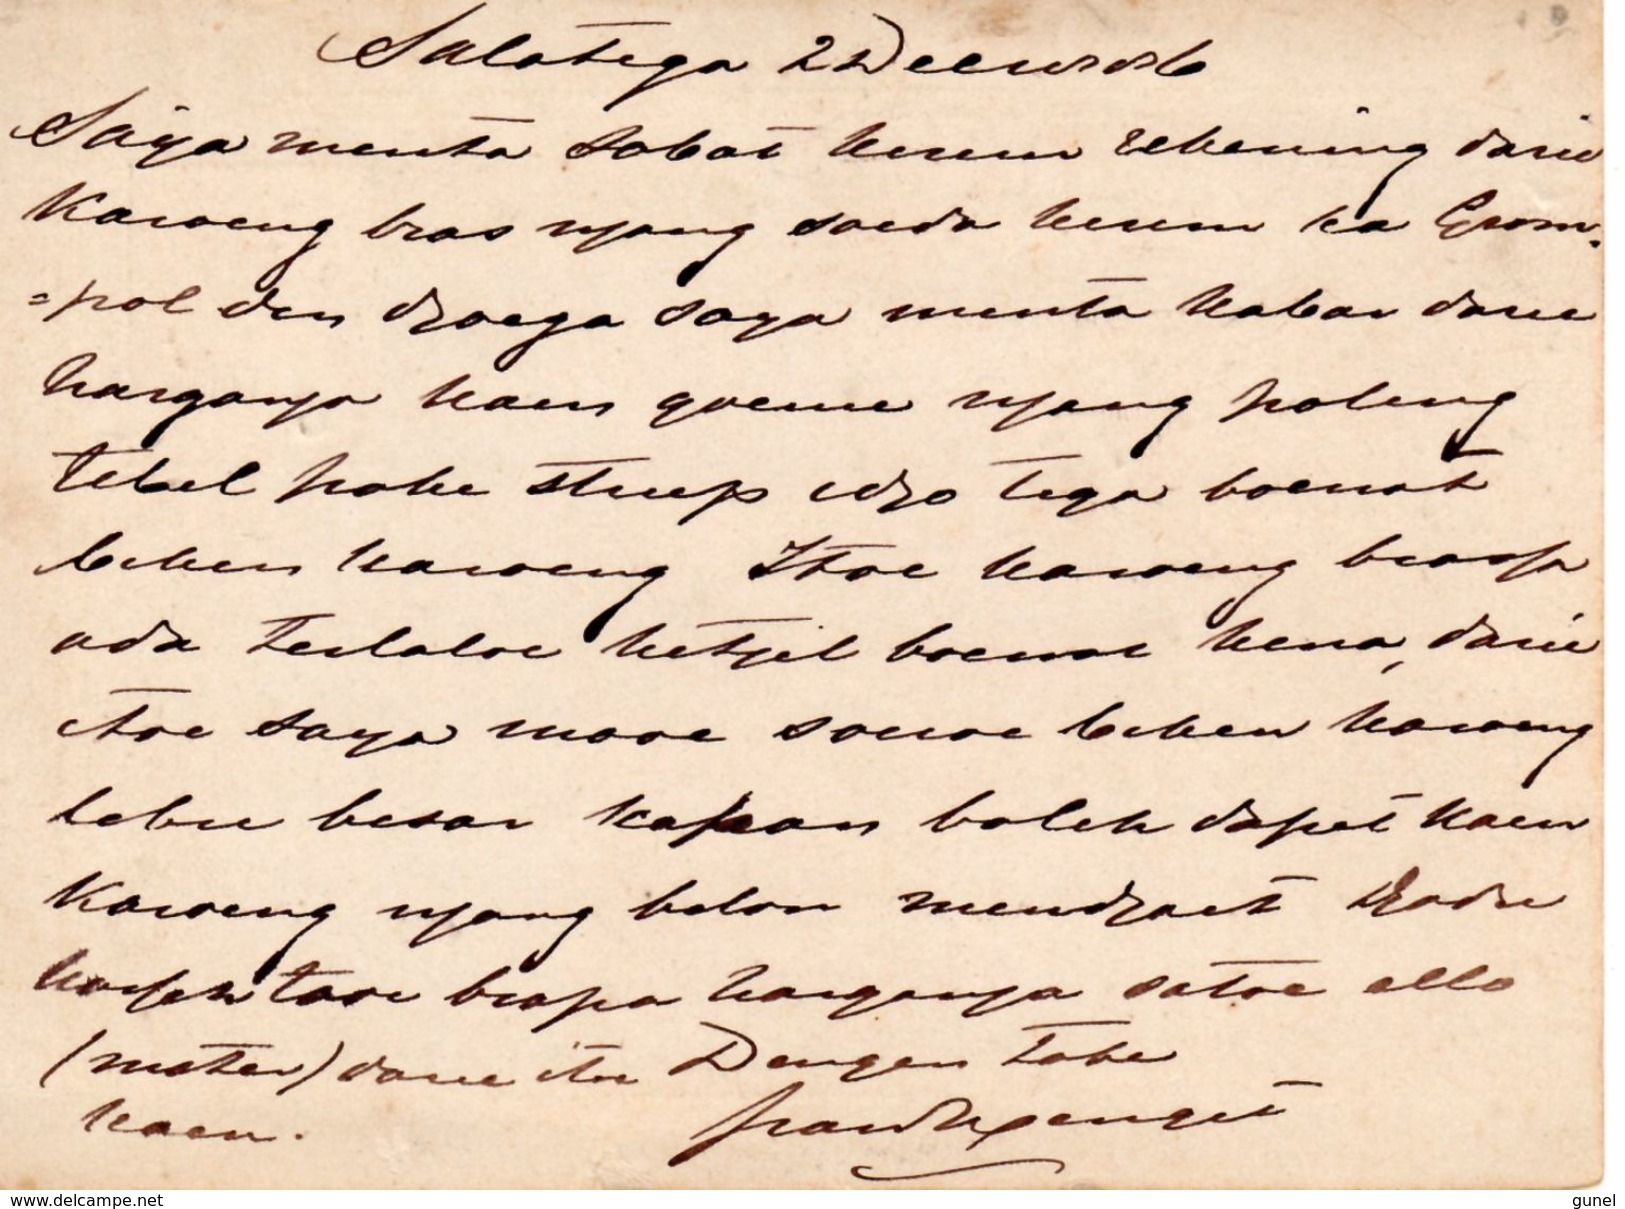 Salatiga 2 December
Saija menta sobat kierim rekening darie
Karoeng bras njang soeda kierim ka Grom-
=pol dan djoega saya menta kabar darie
harganja kaen goenie njang paling
tebel pake striep idjo tiga boewat
bekien karoeng Itoe karoeng brasja
ada terlaloe ketjiel boewat kena, darie
itoe saya maoe soeroe bekien karoeng
lebie besar kapan boleh dapet kaen
karoeng njang belon mendjaet djadie
kasieh taoe brapa harganja satoe ello
(meter) darie itoe Dengen tabe
kaen.
delcampe.net
gunel